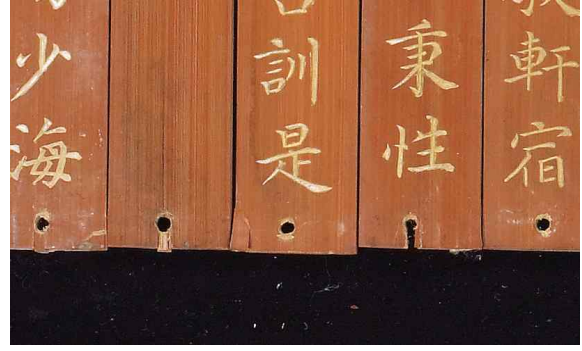 軒宿
秉性
訓是
少海